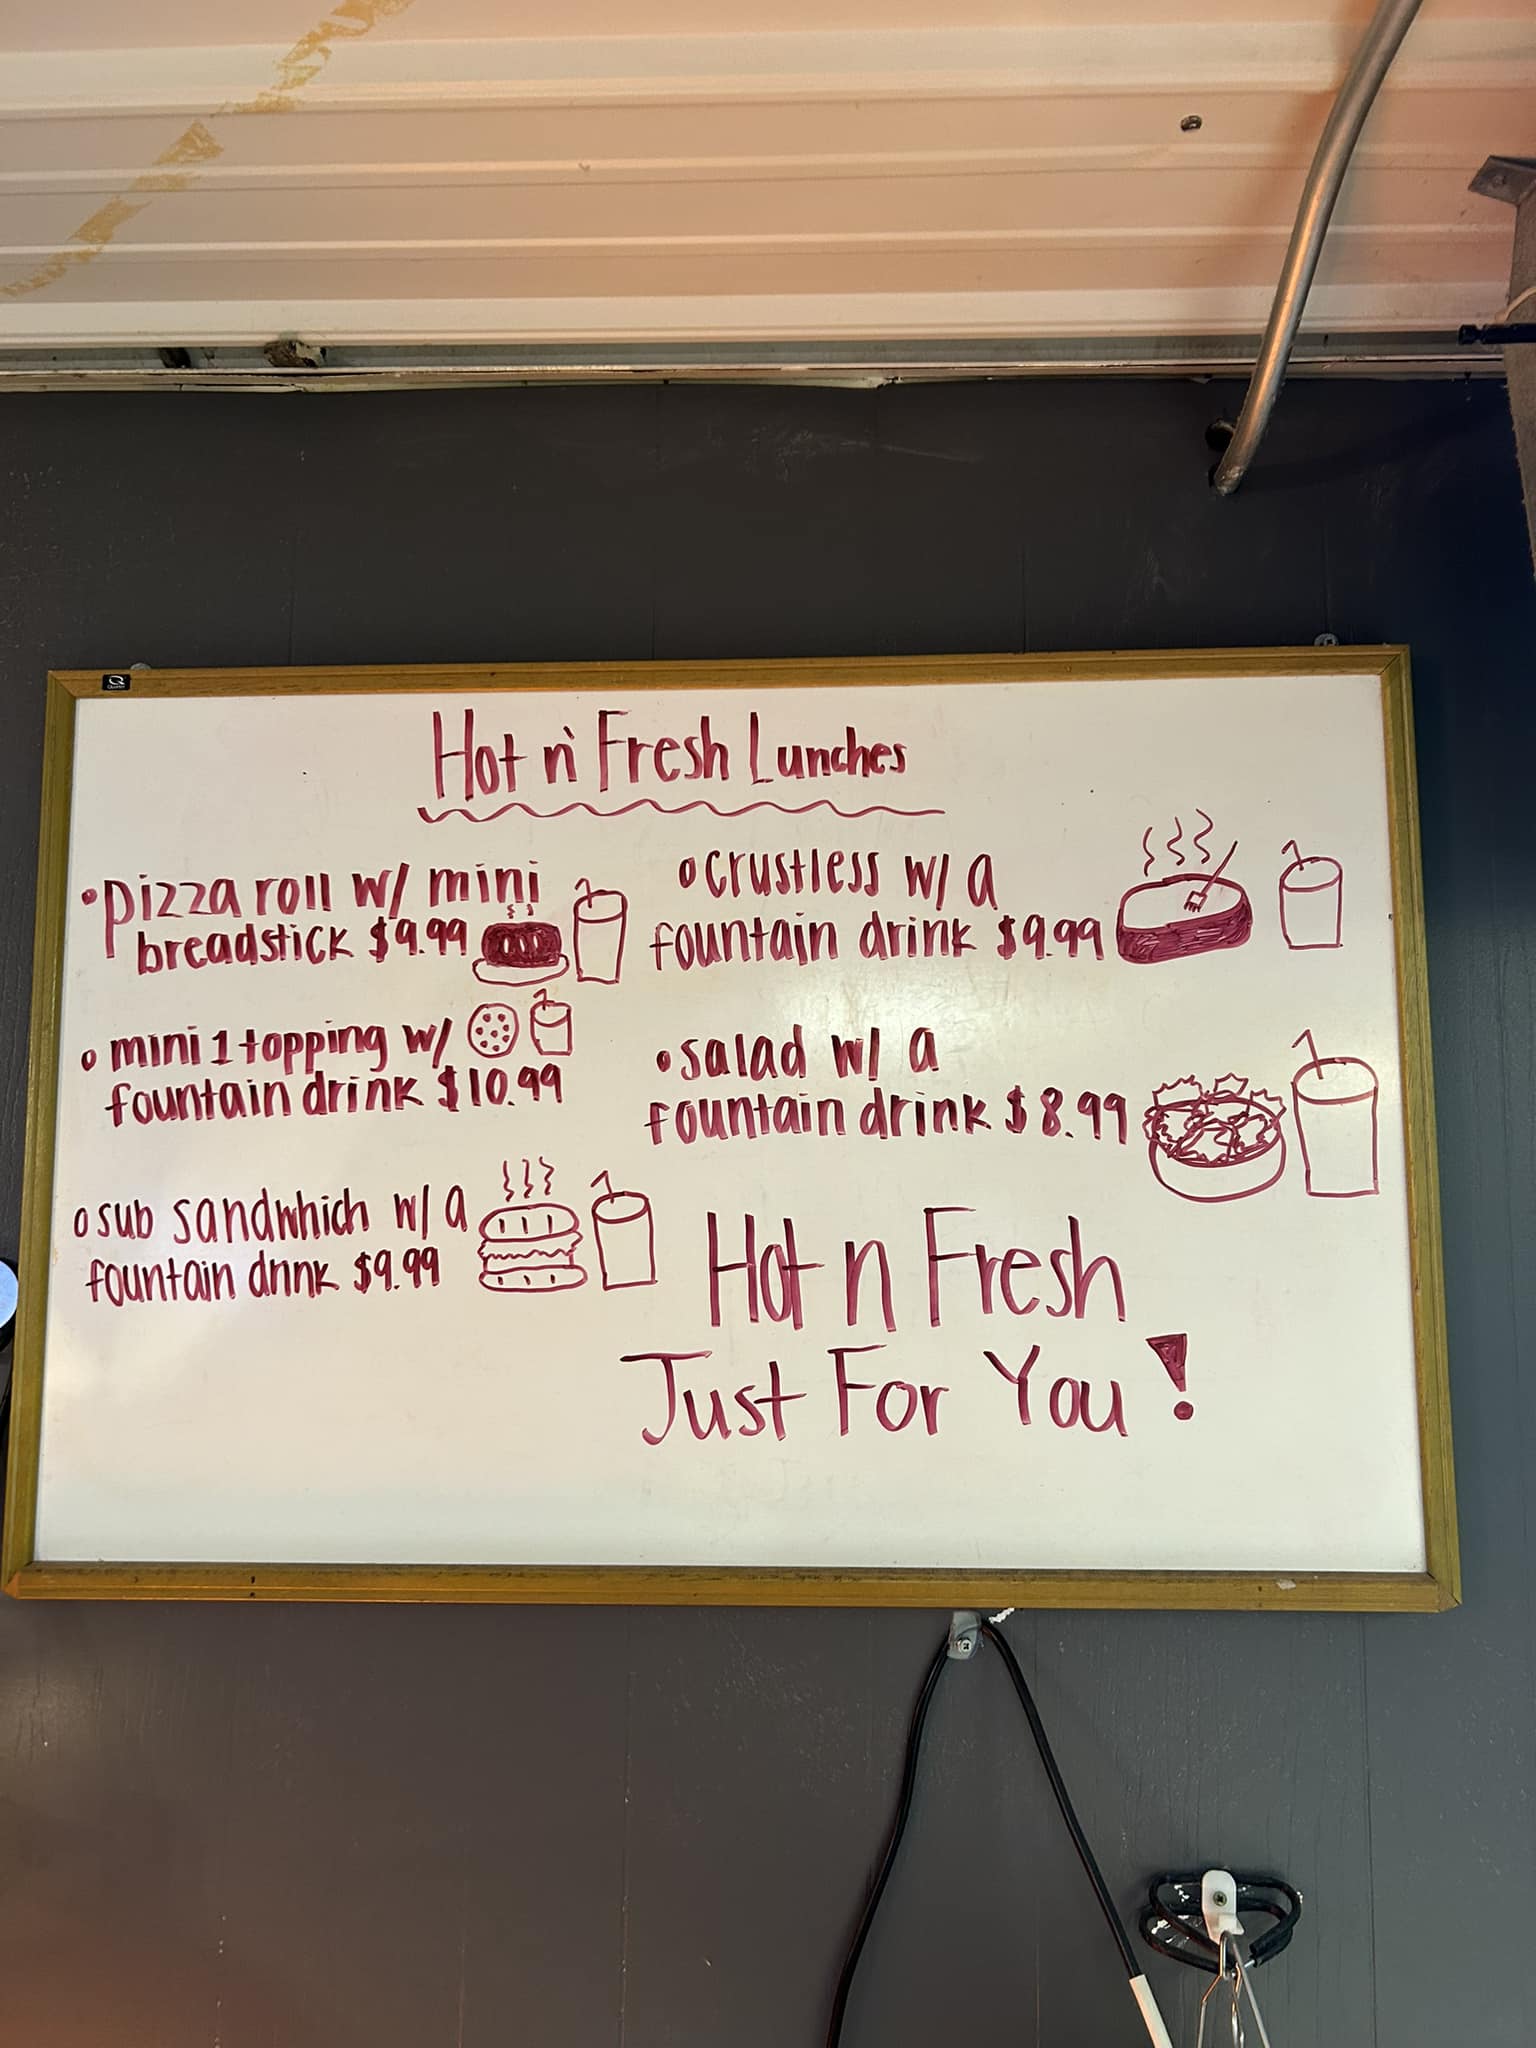 Hot n' Fresh Lunches
•pizza roll w/ mini
breadstick $9.99
•mini 1 topping w/
fountain drink $10.99
•sub sandwhich w/ a
fountain drink $9.99
•crustless w/ a
fountain drink $9.99
•salad w/ a
fountain drink $8.99
Hot n Fresh
Just For You!